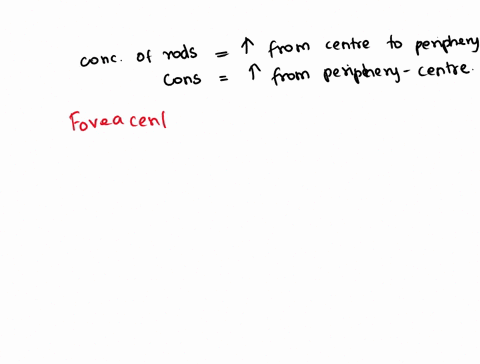 conc. of rods = ↑ from centre to periphery
cons = ↑ from periphery - centre.
Fovea cen